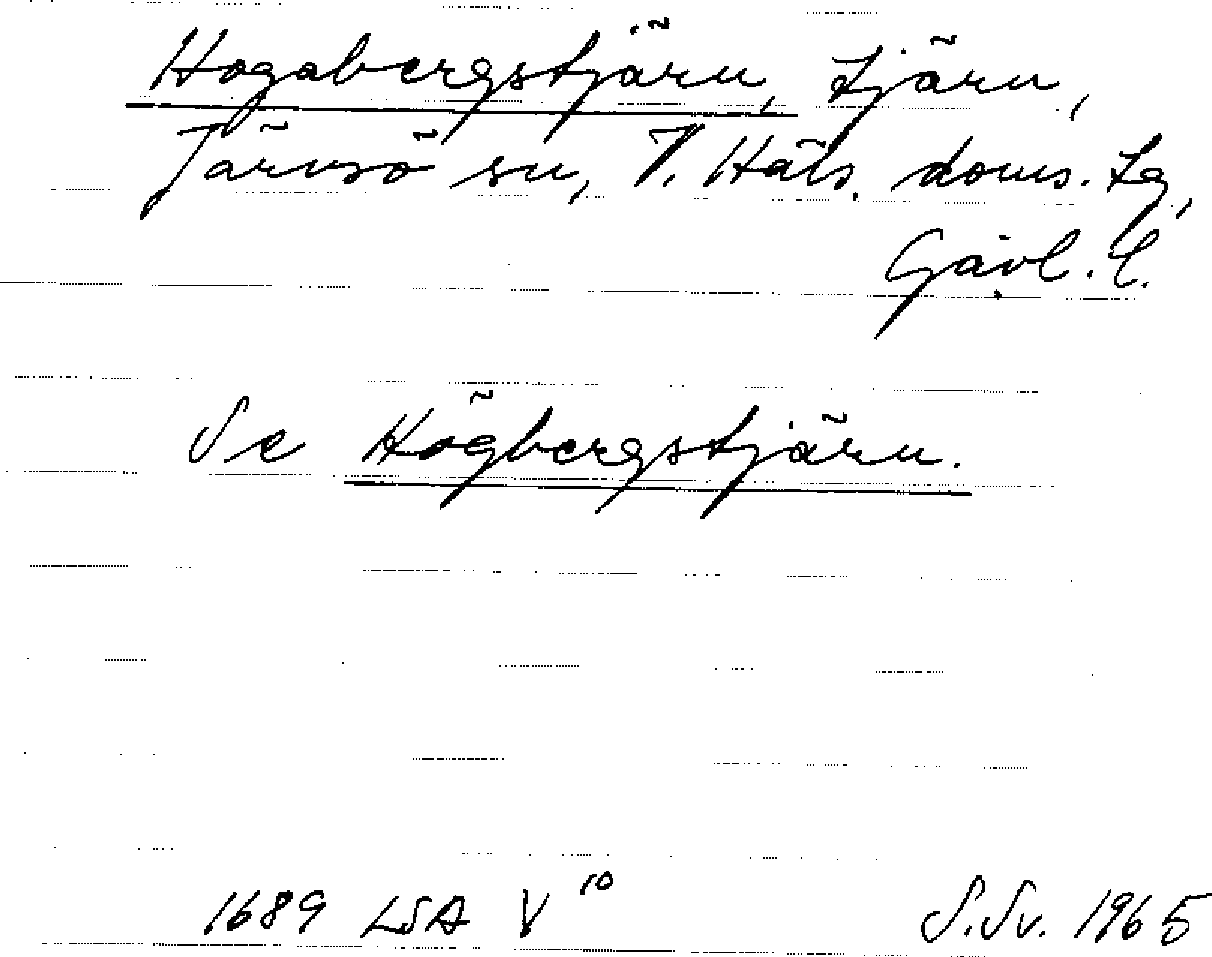 Hogabergstjärn, tjärn,
Järvsö sn, V. Häls. doms. tg,
Gävl. l.
Se Högbergstjärn.
1689 LSA V 10
S.Sv. 1965